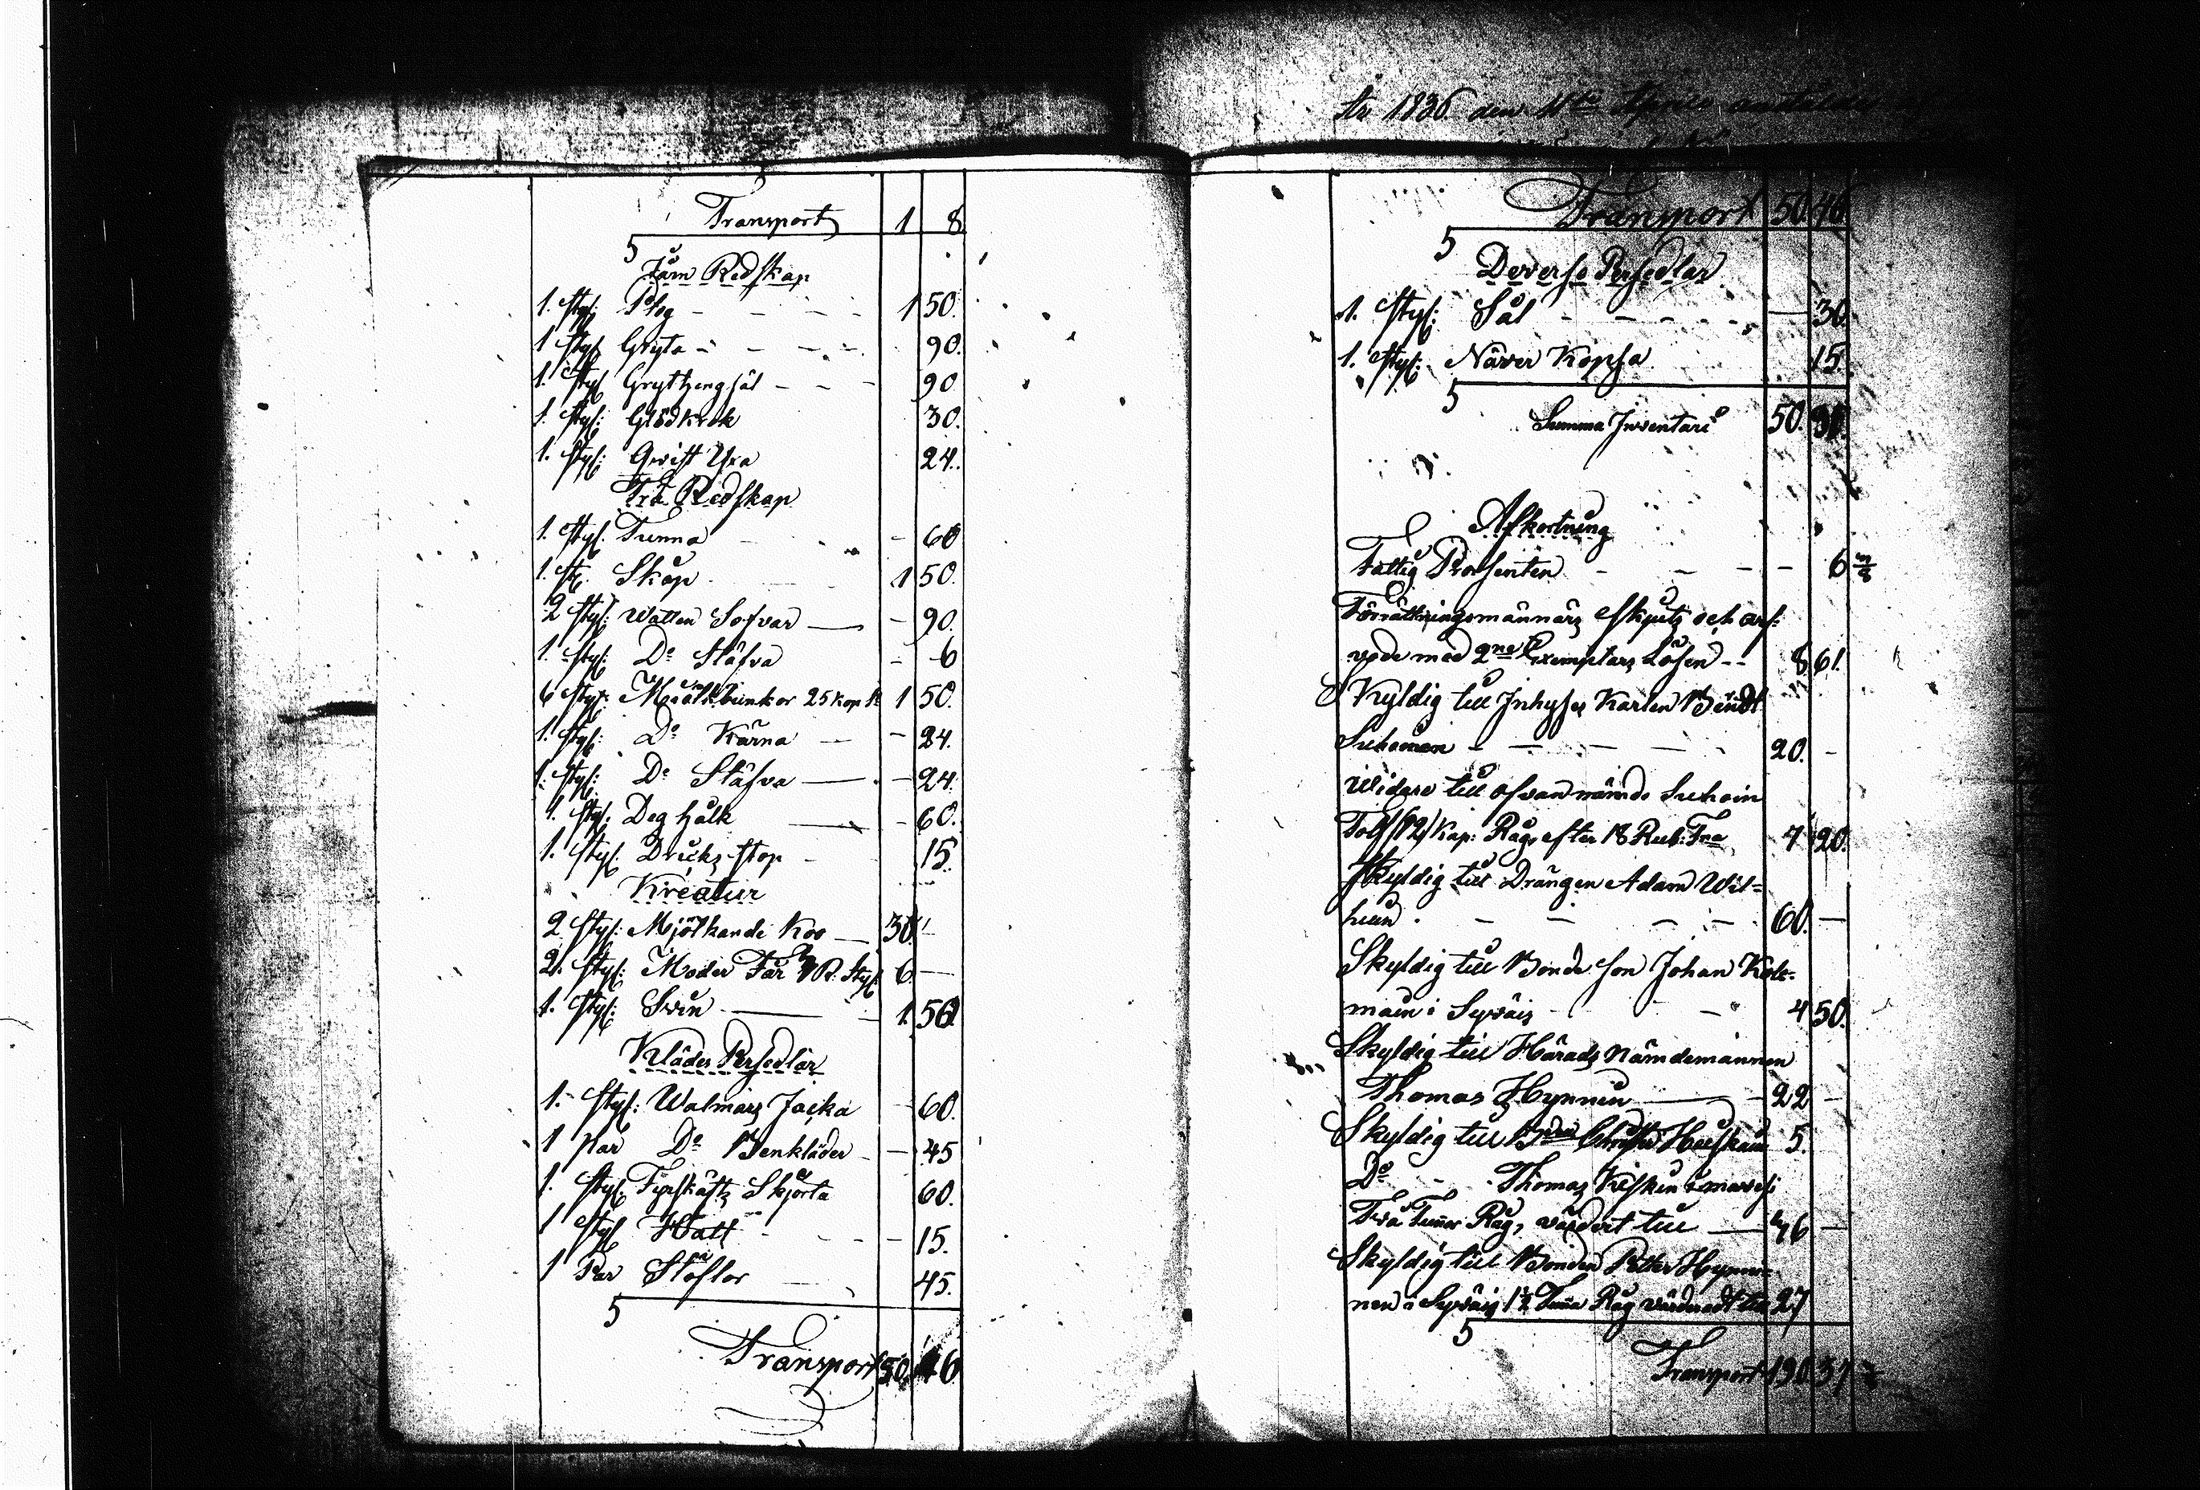 Transport 1 8
Järn Redskap
1. Styk: Plog - - - - 1 50.
1 Styk Gryta - - - - 90.
1. Styk Gryttjengsäl - - - 90
1. Styk: Glödkrok 30.
1. Styk: Qvist Yxa 24.
Trä Redskap
1. Styk: Tunna - - 60
1. St. Skåp - 1 50.
2 Styk: Watten Sofvar — - 90.
1. Styk: Do Stäfva - 6
6 Styk: Miölkbunkor 25 kop St 1 50.
1. Styk: Do Kärna — - 24.
1. Styk: Do Stäfva — - 24.
1. Styk. Deg hålk — - 60.
1. Styk. Dricks stop - 15.
Kreatur
2 Styk: Mjölkande Kor — 30. -
2. Styk: Moder Får 3 R. Styk: 6. —
1. Styk: Svin — 1. 50
Kläder Persedlar
1. Styk: Walmars Jacka - 60.
1 par Do Benkläder - - 45
1. Styk Fyrskafts Skjorta 60.
1 Styk Hatt - - - 15.
1 Par Stöflor — 45.
Transport 50. 46.
År 1836 den 11te Aprill
Transport 50 46
Deverse Persedlar
1. Styk: Sål - - - - — 30.
1. Styk: Näver Kopsa 15.
Summa Inventarii 50. 91.
Afkortning
Fattig Procenten - - - - 6 3/8
Förrättningsmännars skjuts och arf-
vode med 2ne Exemplars Lösen -- 8 61.
Skyldig till Inhyses Karlen Bendt
Suhonen - - - - 20. -
Widare till ofvannämde Suhoin
Tolf (12) Kap: Råg, efter 18 Rub: Tna 4 20.
Skyldig till Drängen Adam Wil-
hun - - - - 60. —
Skyldig till Bonde son Johan Kole-
main i Syväis - - 4 50.
Skyldig till Härads Nämdemannen
Thomas Hynnin — 22 -
Skyldig till Huskain 5.
Do - - Thomas
Två Tunor Råg, värdert till — 46 —
Skyldig till Bonden Petter Hynni-
nen i Syväis 1½ Tunna Råg värderadt till 27
Transport 190 37